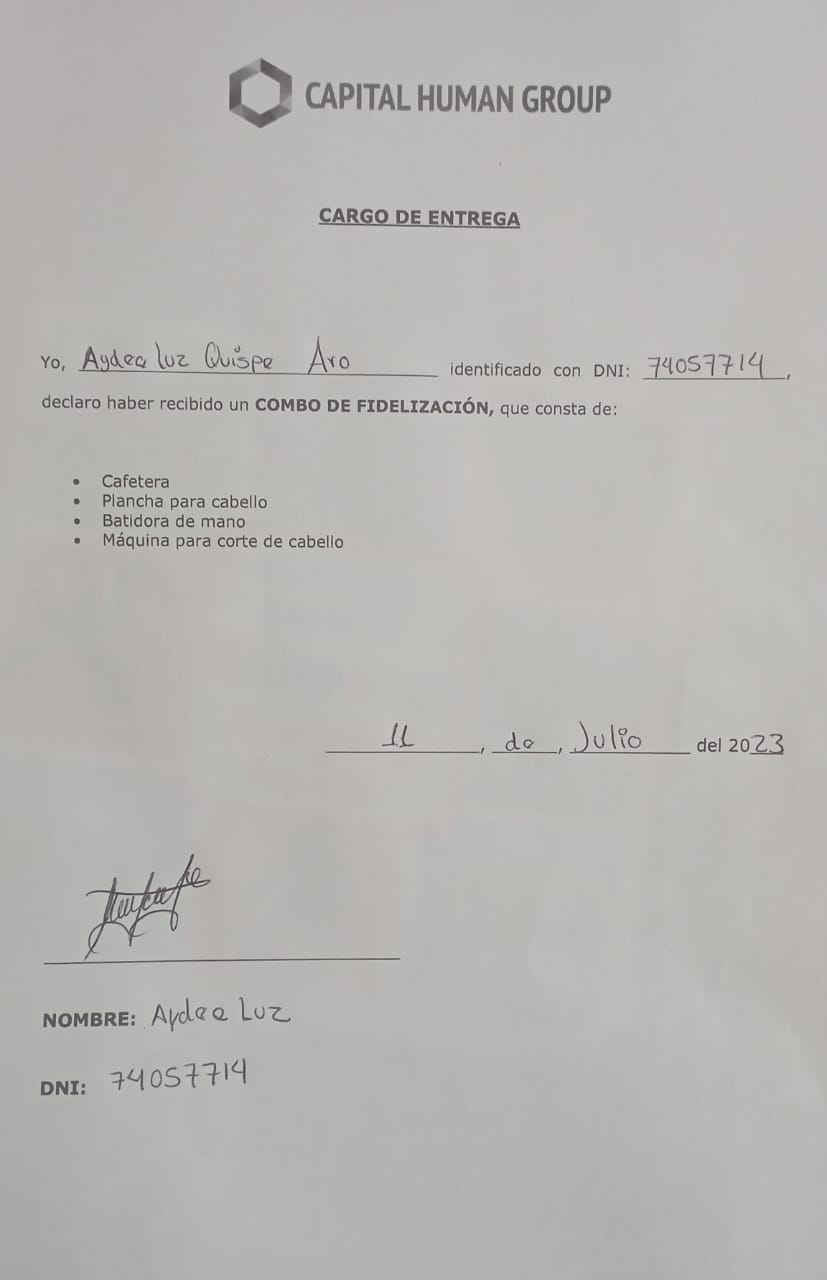 CAPITAL HUMAN GROUP
CARGO DE ENTREGA
Yo, Aydea Luz Quispe Aro identificado con DNI: 74057714,
declaro haber recibido un COMBO DE FIDELIZACIÓN, que consta de:
• Cafetera
• Plancha para cabello
• Batidora de mano
• Máquina para corte de cabello
11, de, Julio del 2023
NOMBRE: Aydea Luz
DNI: 74057714